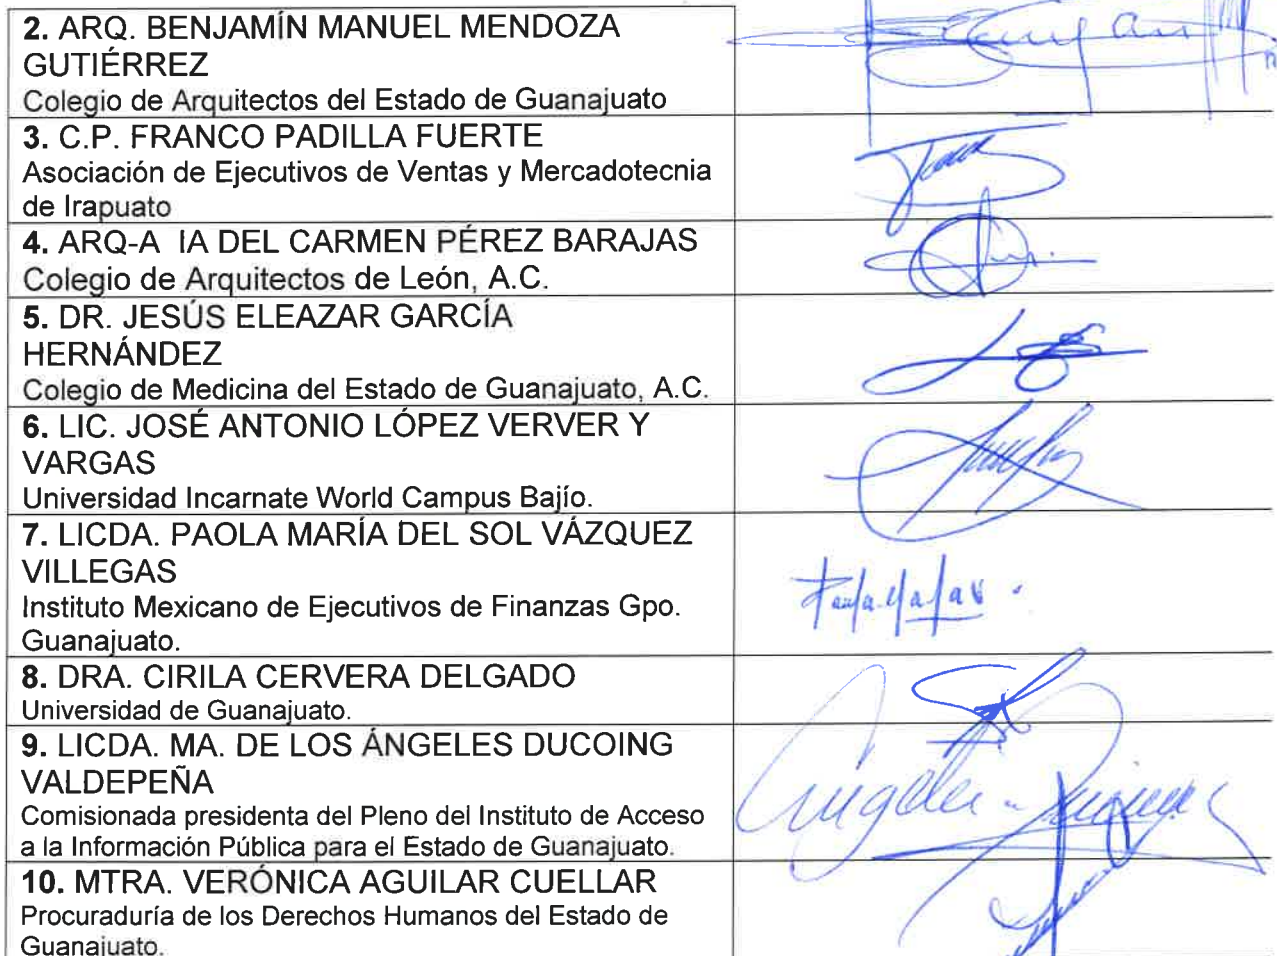 2. ARQ. BENJAMÍN MANUEL MENDOZA
GUTIÉRREZ
Colegio de Arquitectos del Estado de Guanajuato
3. C.P. FRANCO PADILLA FUERTE
Asociación de Ejecutivos de Ventas y Mercadotecnia
de Irapuato
4. ARQ-A IA DEL CARMEN PÉREZ BARAJAS
Colegio de Arquitectos de León, A.C.
5. DR. JESÚS ELEAZAR GARCÍA
HERNÁNDEZ
Colegio de Medicina del Estado de Guanajuato, A.C.
6. LIC. JOSÉ ANTONIO LÓPEZ VERVER Y
VARGAS
Universidad Incarnate World Campus Bajío.
7. LICDA. PAOLA MARÍA DEL SOL VÁZQUEZ
VILLEGAS
Instituto Mexicano de Ejecutivos de Finanzas Gpo.
Guanajuato.
8. DRA. CIRILA CERVERA DELGADO
Universidad de Guanajuato.
9. LICDA. MA. DE LOS ÁNGELES DUCOING
VALDEPEÑA
Comisionada presidenta del Pleno del Instituto de Acceso
a la Información Pública para el Estado de Guanajuato.
10. MTRA. VERÓNICA AGUILAR CUELLAR
Procuraduría de los Derechos Humanos del Estado de
Guanajuato.